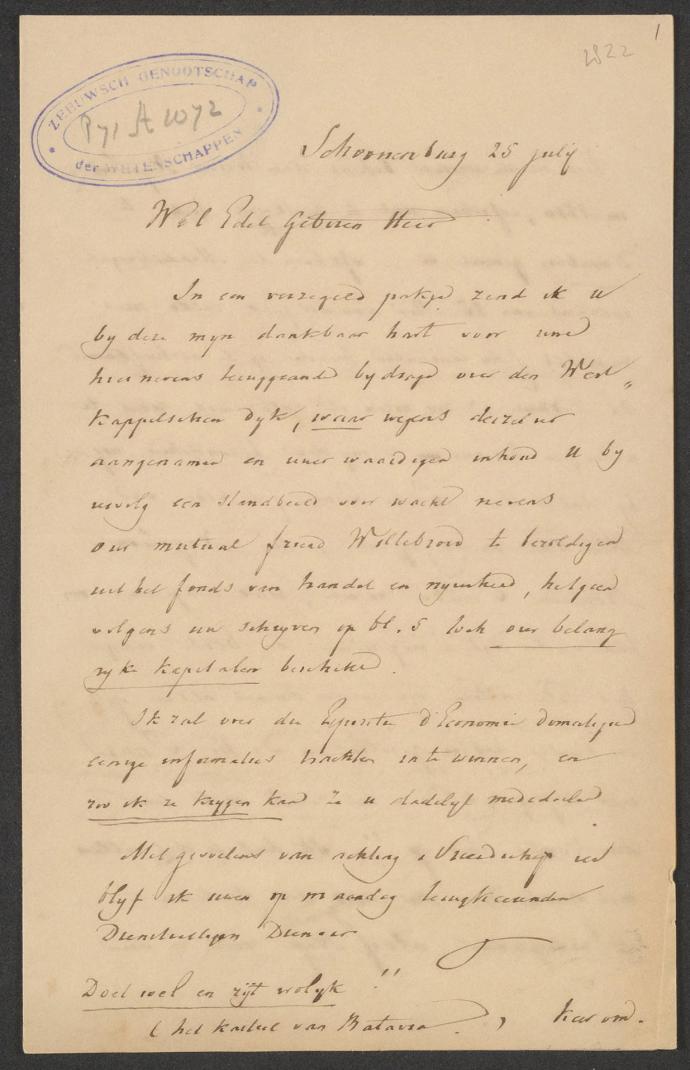 2822
1
ZEEUWSCH GENOOTSCHAP
der WETENSCHAPPEN
Schoonenburg 25 July
Wel Edel Geboren Heer
In een verzegeld pakje zend ik U
by deze myn dankbaar hart voor uwe
hiernevens teruggaande bydrage over den West„
kappelschen Dyk, waar wegens deszelver
aangenamen en waardigen inhoud U by
vervolg een standbeeld voor wacht nevens
our mutual friend Willebrord te bezoldigen
uit het fonds van handel en nyverheid, hetgeen
volgens uw schryven op bl. 5 toch over belang
ryke kapitalen beschikt.
Ik zal over die d'Economie Domestique
eenige informaties trachten in te winnen, en
zoo ik ze krygen kan ze u dadelyk mededeelen
Met gevoelens van achting & Vriendschap
blyf ik uwen op maandag terugkeerenden
Dienstwilligen Dienaar
Doet wel en zyt vrolyk !!
(het kasteel van Batavia ), keer om.